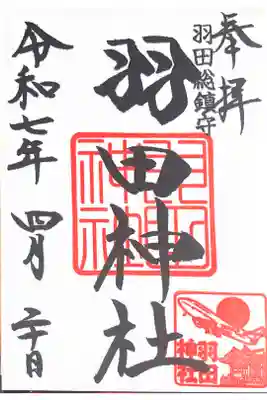 奉拝
羽田総鎮守
羽田神社
令和七年 四月 二十日
羽田
神社